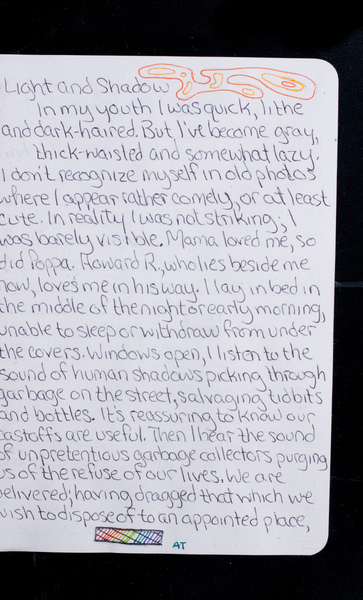 Light and Shadow
In my youth I was quick, lithe
and dark-haired. But I've become gray,
thick-waisted and somewhat lazy.
I don't recognize myself in old photos
where I appear rather comely, or at least
cute. In reality I was not striking; I
was barely visible. Mama loved me, so
did Poppa. Howard R., who lies beside me
now, loves me in his way. I lay in bed in
the middle of the night or early morning,
unable to sleep or withdraw from under
the covers. Windows open, I listen to the
sound of human shadows picking through
garbage on the street, salvaging tidbits
and bottles. It's reassuring to know our
castoffs are useful. Then I hear the sound
of unpretentious garbage collectors purging
us of the refuse of our lives. We are
delivered; having dragged that which we
wish to dispose of to an appointed place,
AT